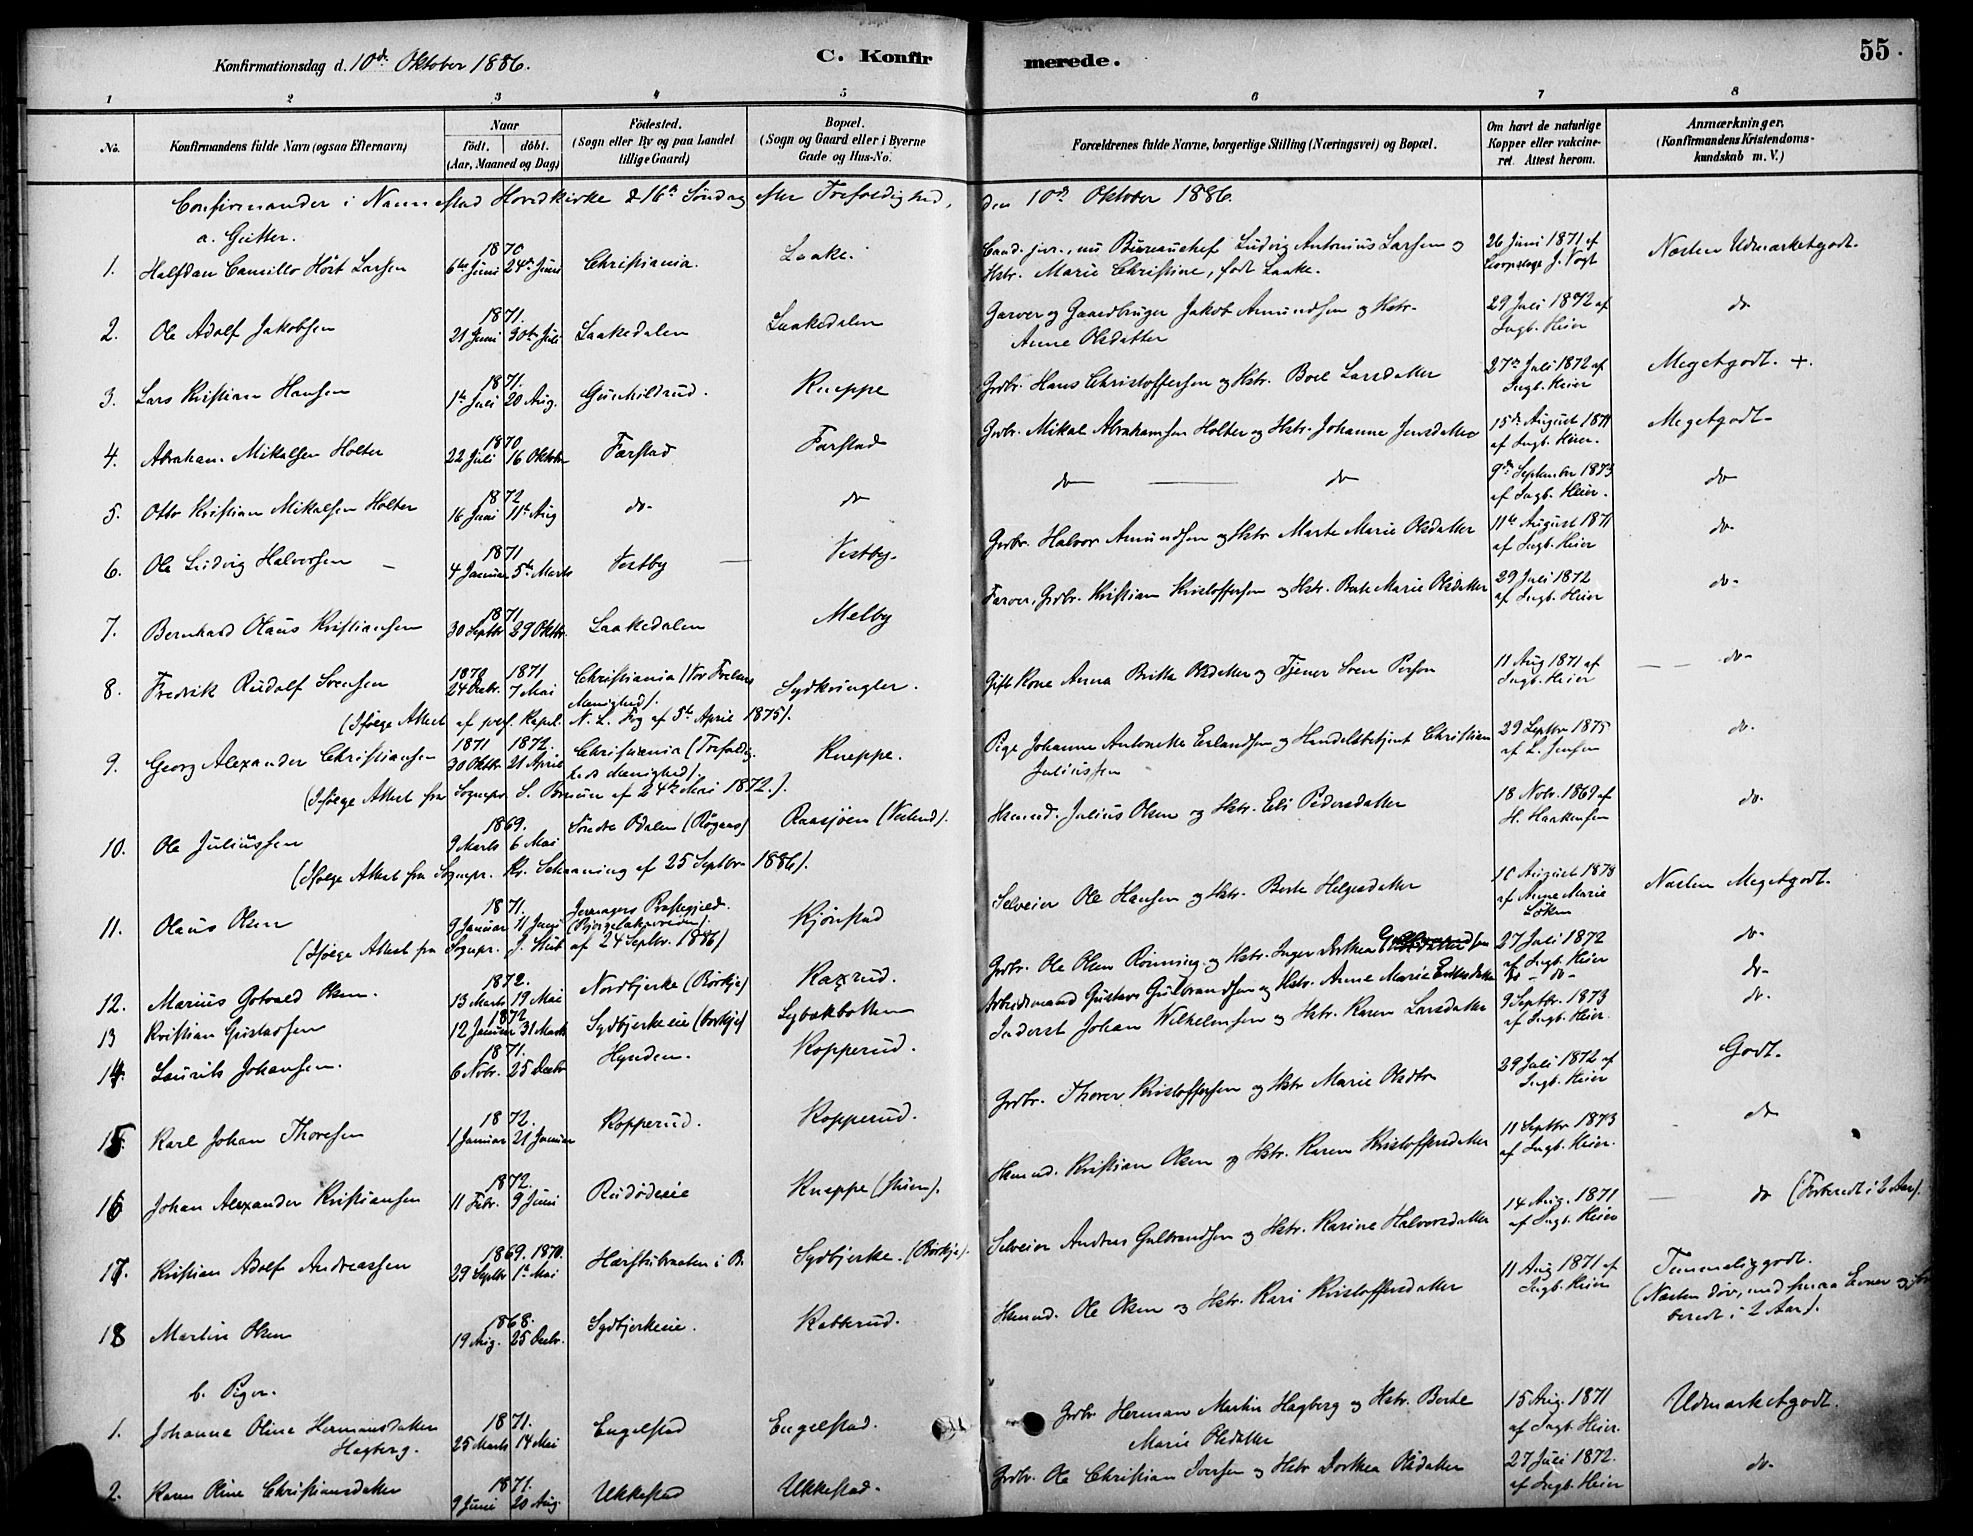 Konfirmationsdag d. 10de Oktober 1886.
C. Konfir
merede.
55.
1 2 3 4 5 6 7 8
No.
Konfirmandens fulde Navn (ogsaa Efternavn)
Naar
födt. döbt.
(Aar, Maaned og Dag)
Födested.
(Sogn eller By og paa Landet
tillige Gaard)
Bopæl.
(Sogn og Gaard eller i Byerne
Gade og Hus-No.
Forældrenes fulde Navne, borgerlige Stilling (Næringsvei) og Bopæl.
Om havt de naturlige
Kopper eller vakcine-
ret. Attest herom.
Anmærkninger.
(Konfirmandens Kristendoms-
kundskab m. V.)
Confirmander i Nannestad Hovedkirke d 16de Söndag efter Trefoldighed, den 10de Oktober 1886.
a. Gutter.
1. Halfdan Camillo Hört Larsen 1870 6te Juni 24de Juni Christiania. Laake. Cand. jur., nu Bureauchef Ludvig Antonius Larsen og Hstr. Marie Christine, født Laake. 26 Juni 1871 af Korpslæge J. Vogt Næsten Udmærketgodt.
2. Ole Adolf Jakobsen 1871. 21 Juni 30te Juli Laakedalen Laakedalen Garver og Gaardbruger Jakob Amundsen og Hstr. Anne Olsdatter 29 Juli 1872 af Ingb. Heier do
3. Lars Kristian Hansen 1871. 1ste Juli 20 Aug. Gunhildrud. Kneppe Grdbr. Hans Christoffersen og Hstr. Boel Larsdatter 27de Juli 1872 af Ingb. Heier Megetgodt. +.
4. Abraham Mikalsen Holter 1870 22 Juli 16 Oktober Farstad Farstad Grdbr. Mikal Abrahamsen Holter og Hstr. Johanne Jensdatter 15de August 1871 af Ingb. Heier. Megetgodt.
5. Otto Kristian Mikalsen Holter 1872 16 Juni 11te Aug do. do do do 9de September 1873 af Ingb. Heier. do
6. Ole Ludvig Halvorsen 1871 4 Januar 5te Marts Vestby Vestby. Grdbr. Halvor Amundsen og Hstr Marte Marie Olsdatter 11te August 1871 af Ingb. Heier do.
7. Bernhard Olaus Kristiansen 1871 30 Septbr 29 Oktbr. Laakedalen Melby Farver, Grdbr. Kristian Kristoffersen og Hstr. Berte Marie Olsdatter 29 Juli 1872 af Ingb. Heier do.
8. Fredrik Rudolf Svensen 1870 1871 24 Decbr. 7 Mai Christiania (Vor Frelsers Menighed). Sydkringler. Gift Kone Anna Britta Olsdatter og Tjener Sven Person 11 Aug 1871 af Ingb. Heier do.
(Ifølge Attest af pers. Kapel. N. L. Fog af 5te April 1875).
9. Georg Alexander Christiansen 1871 1872. 30 Oktbr 21 April Christiania (Trefoldigheds Menighed). Kneppe. Pige Johanne Antonette Erlandsen og Handelsbetjent Christian Juliussen 29 Septbr 1875 af L. Jensen do.
(Ifølge Attest fra Sognepr. S. af 24de Mai 1872.)
10. Ole Juliussen 1869. 9 Marts 6 Mai Söndre Odalen Raasjøen Hsmnd. Julius Olsen og Hstr. Eli Pedersdatter 18 Novbr. 1869 af H. Haakensen do.
(Ifølge Attest fra Sognepr. Kr. Schaaning af 25 Septbr 1886).
11. Olaus Olsen 1871. 9 Januar 11 Juni Jevnagers Præstegjeld. Kjönstad Selveier Ole Hansen og Hstr. Berte Helgesdatter August af Anne Marie Löken Næsten Megetgodt.
(Ifølge Attest fra Sognepr. J. af 24 Septbr. 1886)
12. Marius Gotvald Olsen. 1872. 13 Marts 19 Mai Nordbjerke (Börkje) Raxrud. Grdbr. Ole Olsen Rönning og Hstr. Inger Dorthea 27 Juli 1872 af Ingb. Heier do.
13 Kristian Gustavsen 1872. 12 Januar 31 Marts Sydbjerkeeie (Börkje) Lybækbakken Arbeidsmand Gustavs Gulbrandsen og Hstr. Anne Marie do - do - do.
14. Laurits Johansen. 1871. 6 Novbr. 25 Decbr Hynden. Kopperud. Inderst Johan Wilhelmsen og Hstr. Karen Larsdatter 9 Septbr. 1873 af Ingb. Heier. do.
15. Karl Johan Thoresen 1872. 1 Januar 21 Januar Kopperud. Kopperud. Grdbr. Thorer Kristoffersen og Hstr Marie Olsdtr. 29 Juli 1872 af Ingb. Heier Godt.
16 Johan Alexander Kristiansen 1872. 11 Febr. 9 Juni Rudödeeie Kneppe Hsmnd. Kristian Olsen og Hstr. Karen Kristoffersdatter 11 Septbr 1873 af Ingb. Heier. do
17. Kristian Adolf Andreassen 1869. 1870. 29 Septbr 1ste Mai i B. Sydbjerke. (Börkje). Selveier Andreas Gulbrandsen og Hstr. Karine Halvorsdatter 14 Aug. 1871 af Ingb. Heier do (Forberedt i 2 Aar).
18 Martin Olsen 1868. 19 Aug. 25 Decbr. Sydbjerkeeie. Kabberud. Hsmnd. Ole Olsen og Hstr. Kari Kristoffersdatter 11 Aug 1871 af Ingb. Heier Temmeliggodt. (Næsten döv, med smaa Evner og forberedt i 2 Aar).
b. Piger.
1. Johanne Oline Hermansdatter Hagberg. 1871. 25 Marts 14 Mai Engelstad Engelstad. Grdbr Herman Martin Hagberg og Hstr. Berte Marie Olsdatter 15 Aug. 1871 af Ingb. Heier. Udmærketgodt.
2. Karen Oline Christiansdatter 1871. 9 Juni 20 Aug. Ukkestad Ukkestad. Grdbr. Ole Christian Iversen og Hstr Dorthea Olsdatter 27 Juli 1872. af Ingb. Heier do.